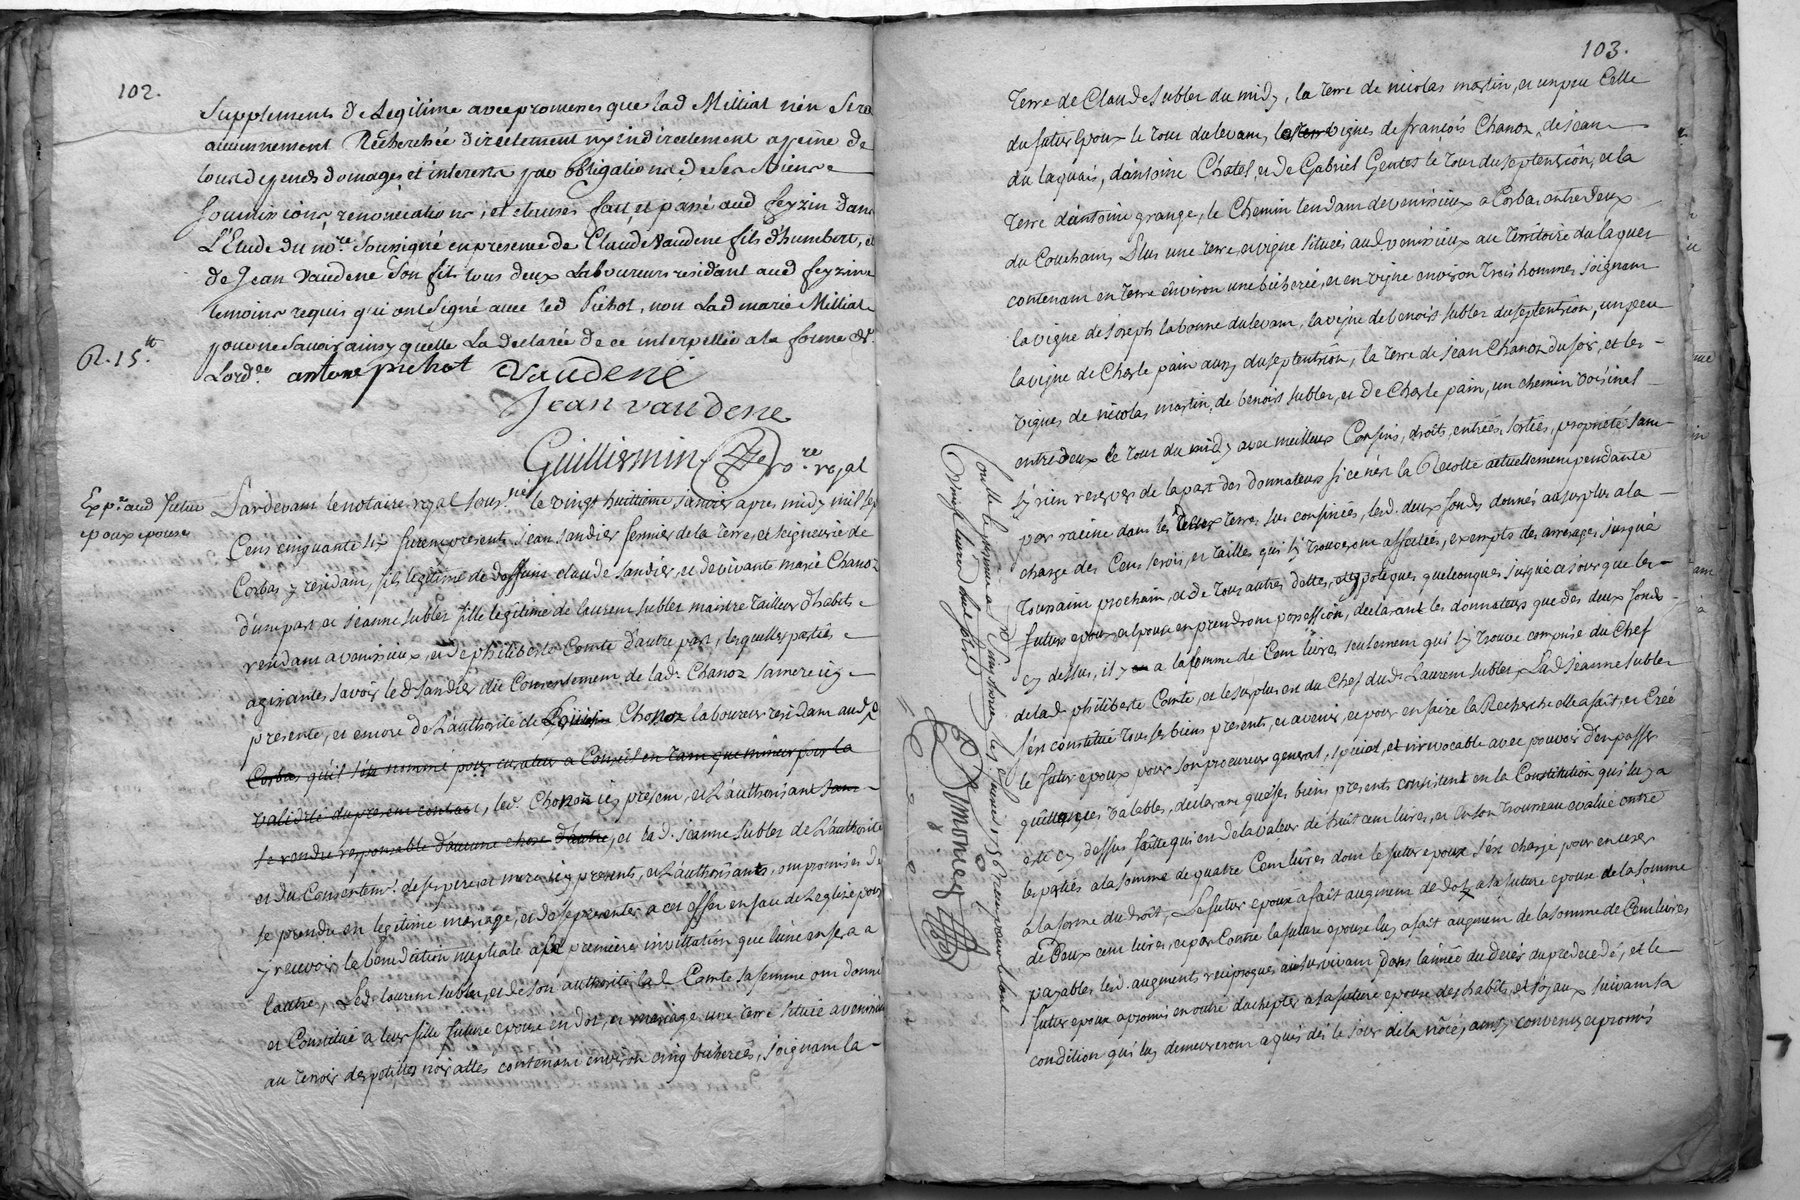 102.
Supplement de Legitime avec promesses que lad Milliat n'en Sera
aucunement Recherchée directement ny indirectement a peine de
tous depends domages et interests par obligations de Ses biens
Soumissions, renonciations, et clauses fait et passé aud feyzin dans
L'Etude du no.re Soussigné en presence de Claude Vaudene fils d'humbert, et
de Jean Vaudene Son fils tous deux Laboureurs residant aud feyzin
temoins requis qui ont Signé avec led Pichot, non Lad marie Milliat
pour ne Savoir ainsy quelle La declarée de ce interpellée a la forme de
Lord.ce antoine pichot Vaudene
R. 15.s
Jean vaudene
Guillermin no.re royal
Exp.é aud futur
epoux epouse
Pardevant le notaire royal sous.né le vingt huittieme janvier apres midy mil sept
Cens cinquante six furent presents jean sandier fermier de la Terre, et seigneurie de
Corbas y residant, fils legitime de deffunt claude sandier, et de vivante marie Chanoz
d'une part et jeanne sublet fille legitime de laurent sublet maistre tailleur d'habits
rendant a venissieux, et de philiberte Comte d'autre part, lesquelles parties
agissantes savoir led sandier du Consentement de lad. Chanoz sa mere icy
presente, et encore de L'authorité de Chanoz laboureur residant aud
Corbas qu'il s'est nommé pour curateur a Conseil en tant que mineur pour la
validité du present contract, led. Chanoz icy present, et L'authorisant sans
se rendre responsable d'aucune chose d'autre, et lad. jeanne sublet de L'authorité
et du Consentem.t de ses pere et mere icy presents, et L'authorisants, ont promis de
se prendre en legitime mariage, et de se presenter a cet effet en face de L'eglise pour
y recevoir le benediction nuptiale a la premiere invitation que l'une en fera a
l'autre, Led. laurent sublet, et de son authorité lad. Comte sa femme ont donné
et Constitué a leur fille future epouse en dot, et mariage une terre située a venissieux
au terroir des petittes noirattes contenant environ cinq bicherées, joignant la
103.
Terre de Claude sublet du midy, la terre de nicolas martin, et un peu Celle
du futur epoux le tout du levant, les vignes de francois Chanoz, de jean
du laquais, d'antoine Chatel, et de Gabriel Gentes le tout du septentrion, et la
terre d'antoine grange, le Chemin tendant de venissieux a Corbas entre deux
du Couchant, Plus une terre, et vigne situées aud. venissieux au territoire du laquet
contenant en terre environ une bicherée, et en vigne environ trois hommes joignant
la vigne de joseph labonne du levant, la vigne de benoist sublet du septentrion, un peu
la vigne de Charle pain aussy du septentrion, la terre de jean Chanoz du soir, et les
vignes de nicolas martin, de benoist sublet, et de Charle pain, un chemin voisinel
entre deux le tout du midy avec meilleurs Confins, droits, entrées, sorties, proprieté sans
s'y rien reserver de la part des donnateurs si ce n'est la Recolte actuellement pendante
par racine dans les terres sus confinées, lesd. deux fonds donnés au surplus a la
charge des Cens servis, et tailles qui s'y trouveront affectées, exempts des arrerages jusqu'a
Toussaint prochain, et de tous autres dettes, et ypoteques quelconques jusque a jour que les
futurs epoux, et epouse en prendront possession, declarant les donnateurs que des deux fonds
cy dessus, il y a la somme de Cent livres seulement qui s'y trouve comprise du Chef
de lad. philiberte Comte, et le surplus est du Chef dud. Laurent sublet. Lad jeanne sublet
s'est constitué tous ses biens presents, et avenir, et pour en faire la Recherche elle a fait, et Creé
le futur epoux pour son procureur general, special, et irrevocable avec pouvoir d'en passer
quittances valables, declarant que ses biens presents consistent en la Constitution qui luy a
esté cy dessus faitte qui est de la valeur de huit cent livres, et en son trousseau evalué entre
les parties a la somme de quatre Cent livres dont le futur epoux s'est chargé pour en user
a la forme du droit, Le futur epoux a fait augment de dot a sa future epouse de la somme
de Deux cent livres, et par Contre la future epouse luy a fait augment de la somme de Cent livres
payables lesd. augments reciproques au survivant dans l'année du deces du predecedé, et le
futur epoux a promis en outre d'achepter a sa future epouse des habits, et joyaux suivant sa
condition qui luy demeureront acquis dés le jour de la nôce, ainsy convenu, et promis